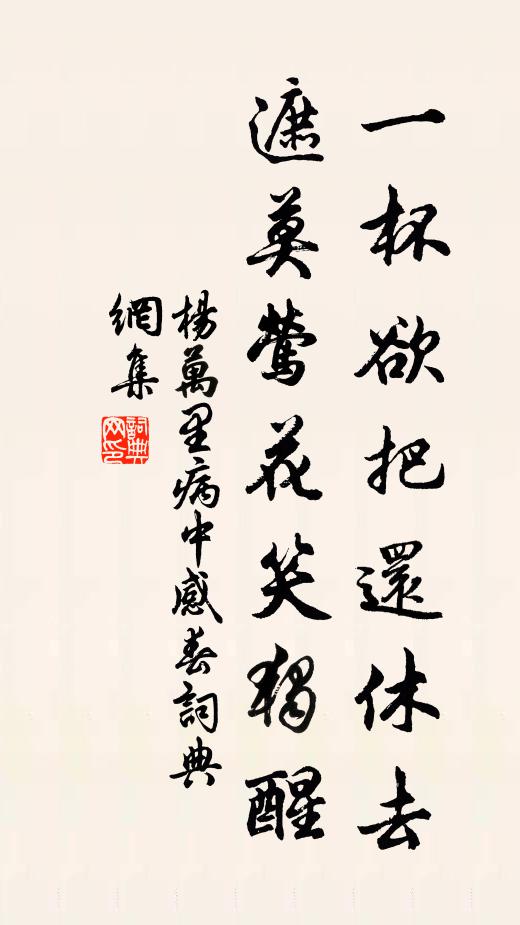 一杯欲把還休去
遮莫鶯花笑獨醒
楊萬里病中感春詞典
網集
詞典网印